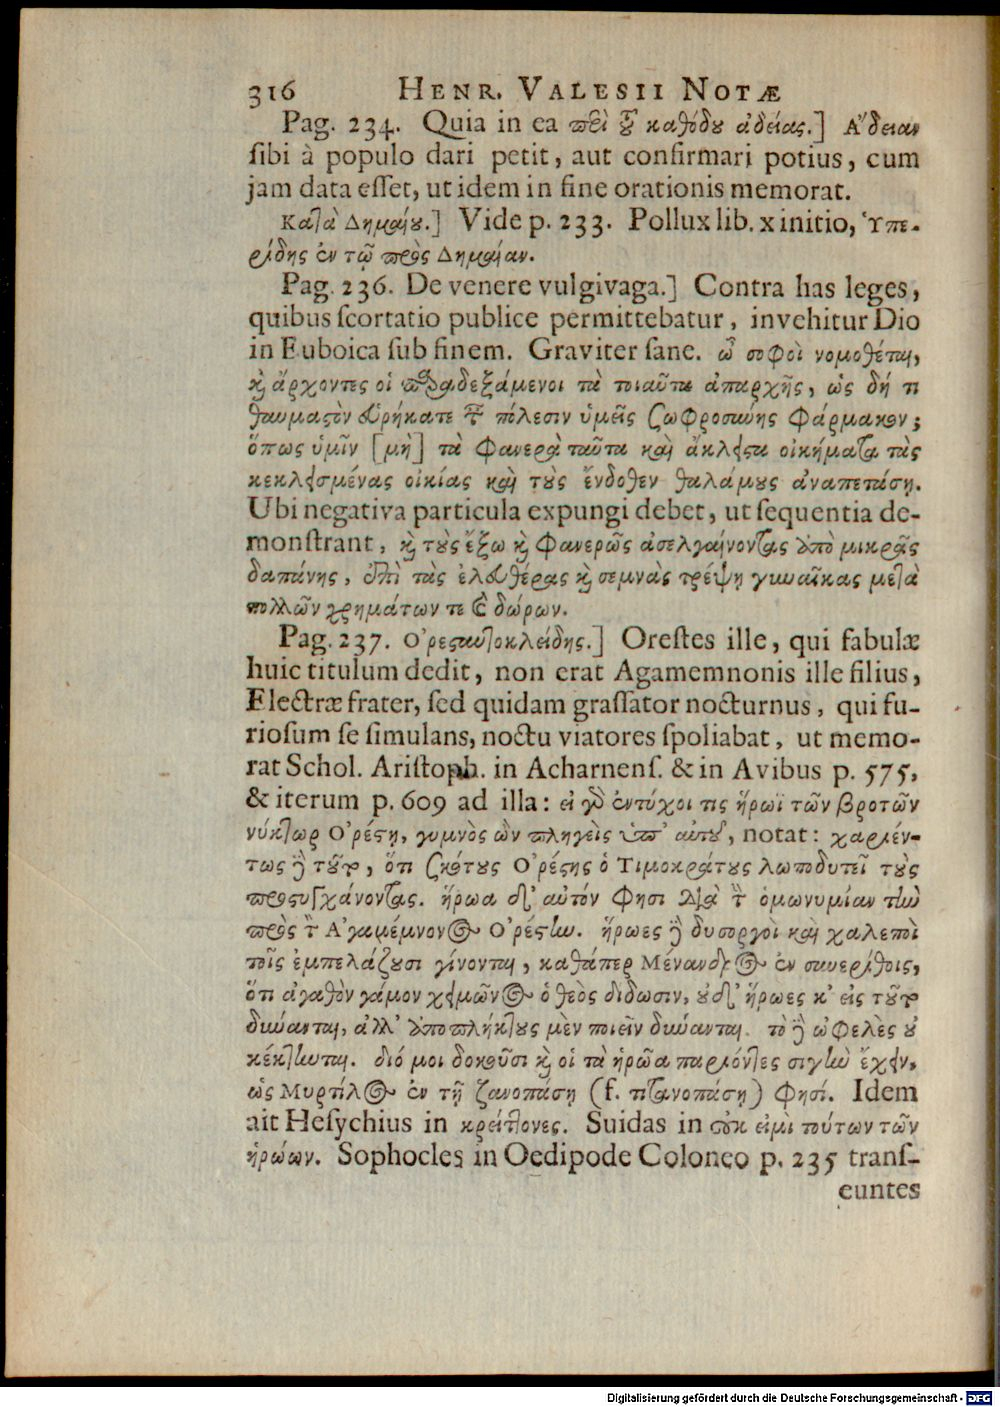 316 HENR. VALESII NOTÆ
Pag. 234. Quia in ea περὶ τοῦ καθόδου ἀδείας.] Ἄδειαν
ſibi à populo dari petit, aut confirmari potius, cum
jam data eſſet, ut idem in fine orationis memorat.
Κατὰ Δημαίου.] Vide p. 233. Pollux lib. x initio, Ὑπε-
ρίδης ἐν τῷ πρὸς Δημαίαν.
Pag. 236. De venere vulgivaga.] Contra has leges,
quibus ſcortatio publice permittebatur, invehitur Dio
in Euboica ſub finem. Graviter ſane. ὦ σοφοὶ νομοθέται,
καὶ ἄρχοντες οἱ παραδεξάμενοι τὰ τοιαῦτα ἀπαρχῆς, ὡς δή τι
θαυμαστὸν εὑρήκατε τῶν πόλεσιν ὑμεῖς σωφροσύνης φάρμακον;
ὅπως ὑμῖν [μὴ] τὰ φανερὰ ταῦτα καὶ ἄκλειστα οἰκήματα τὰς
κεκλεισμένας οἰκίας καὶ τοὺς ἔνδοθεν θαλάμους ἀναπετάσῃ.
Ubi negativa particula expungi debet, ut ſequentia de-
monſtrant, καὶ τοὺς ἔξω καὶ φανερῶς ἀσελγαίνοντας ἀπὸ μικρᾶς
δαπάνης, ἐπὶ τὰς ἐλευθέρας καὶ σεμνὰς τρέψῃ γυναῖκας μετὰ
πολλῶν χρημάτων τε καὶ δώρων.
Pag. 237. Ὀρεσταυτοκλείδης.] Oreſtes ille, qui fabulæ
huic titulum dedit, non erat Agamemnonis ille filius,
Electræ frater, ſed quidam graſſator nocturnus, qui fu-
rioſum ſe ſimulans, noctu viatores ſpoliabat, ut memo-
rat Schol. Ariſtoph. in Acharnenſ. & in Avibus p. 575,
& iterum p. 609 ad illa: εἰ γὰρ ἐντύχοι τις ἥρωϊ τῶν βροτῶν
νύκτωρ Ὀρέστῃ, γυμνὸς ὢν πληγεὶς ὑπ' αὐτοῦ, notat: χαριέν-
τως δὲ τοῦτο, ὅτι σκότους Ὀρέστης ὁ Τιμοκράτους λωποδυτεῖ τοὺς
προστυγχάνοντας. ἥρωα δ' αὐτόν φησι διὰ τὴν ὁμωνυμίαν τὴν
πρὸς τὸν Ἀγαμέμνονος Ὀρέστην. ἥρωες δὲ δυσοργοὶ καὶ χαλεποὶ
τοῖς ἐμπελάζουσι γίνονται, καθάπερ Μένανδρος ἐν συνερίθοις,
ὅτι ἀγαθὸν γάμον χειμῶνος ὁ θεὸς δίδωσιν, οὐδ' ἥρωες κ' εἰς τοῦτο
δύνανται, ἀλλ' ἀποπλήκτους μὲν ποιεῖν δύνανται. τὸ δὲ ὠφελὲς οὐ
κέκτηνται. διό μοι δοκοῦσι καὶ οἱ τὰ ἡρῶα παριόντες σιγὴν ἔχειν,
ὡς Μυρτίλος ἐν τῇ ζανοπάσῃ (f. τιτανοπάσῃ) φησί. Idem
ait Heſychius in κρείττονες. Suidas in οὐκ εἰμὶ τούτων τῶν
ἡρώων. Sophocles in Oedipode Coloneo p. 235 tranſ-
euntes
Digitalisierung gefördert durch die Deutsche Forschungsgemeinschaft - DFG